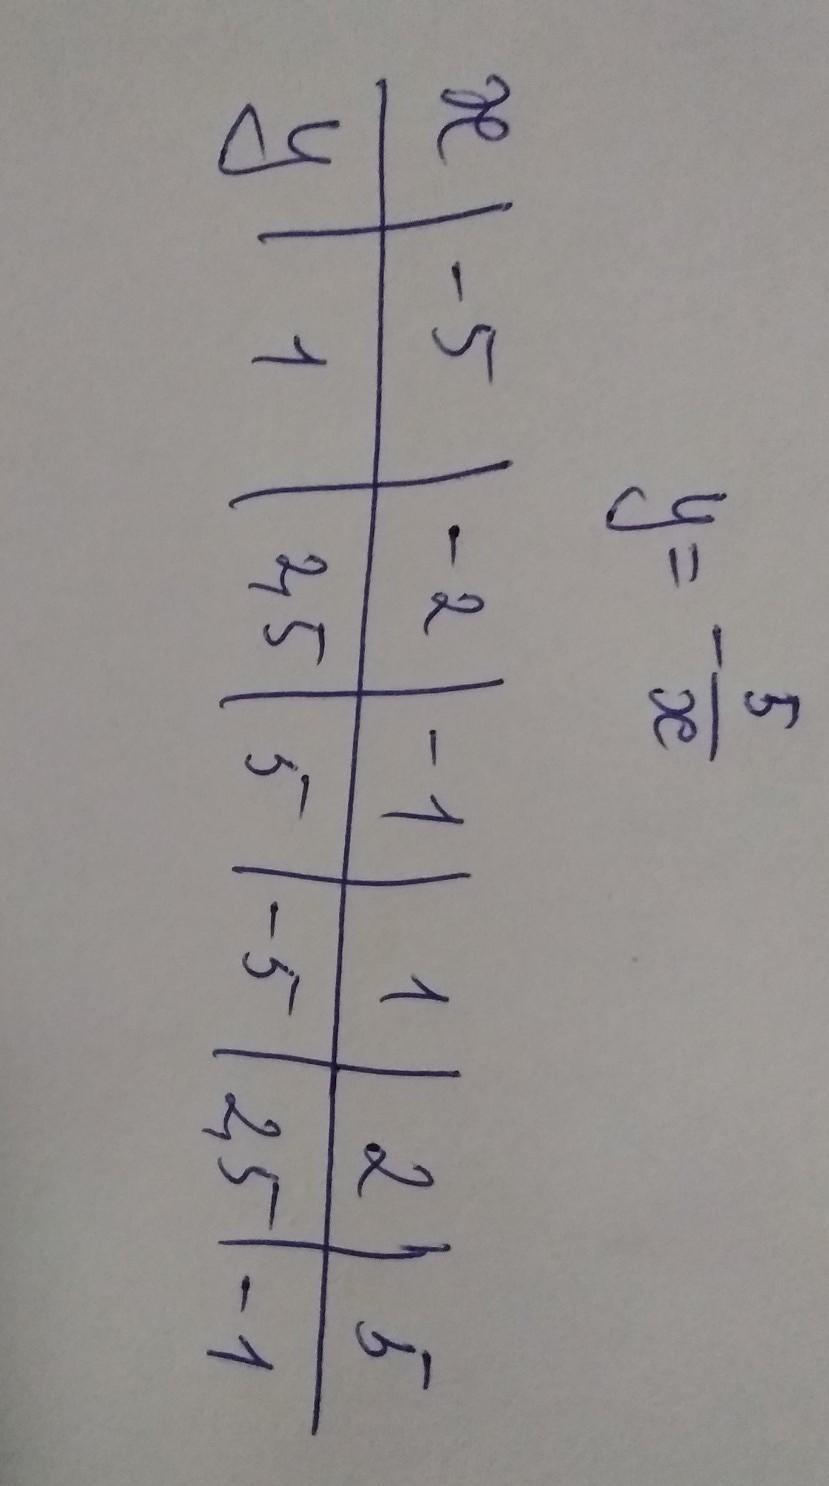 y = - 5/x
x | -5 | -2 | -1 | 1 | 2 | 5
y | 1 | 2,5 | 5 | -5 | 2,5 | -1